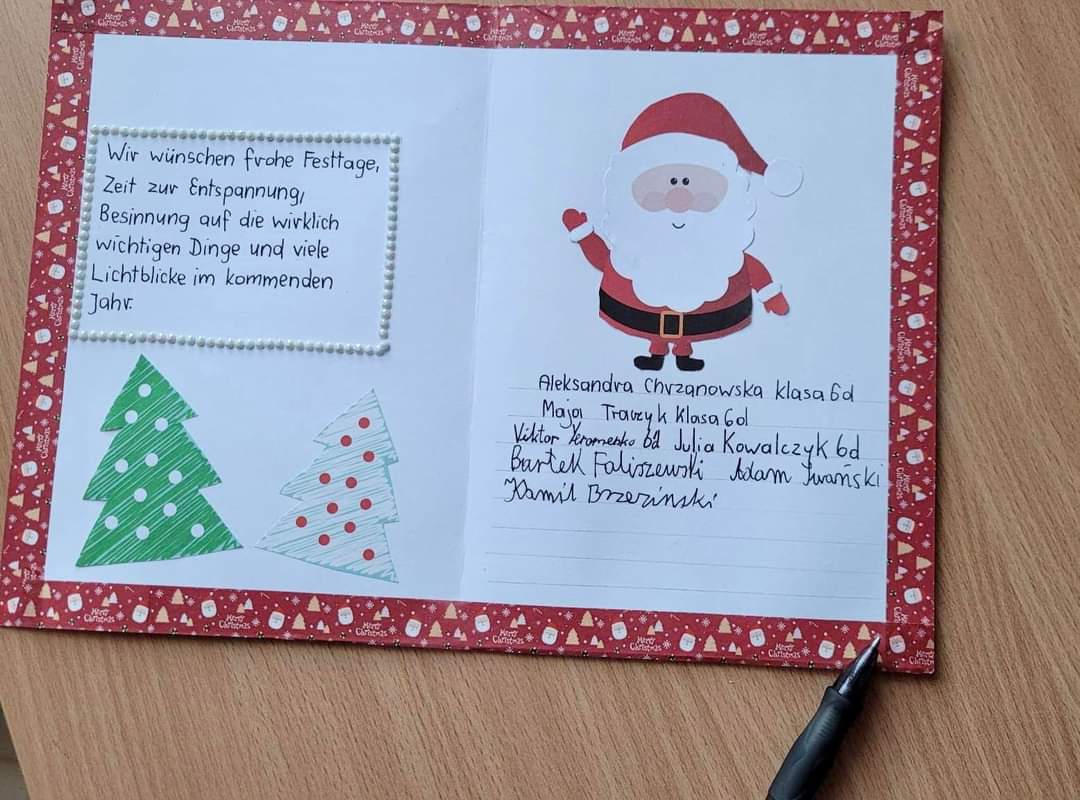 Wir wünschen frohe Festtage,
Zeit zur Entspannung,
Besinnung auf die wirklich
wichtigen Dinge und viele
Lichtblicke im kommenden
Jahr.
Aleksandra Chrzanowska klasa 6d
Maja Traczyk Klasa 6d
Viktor 6d Julia Kowalczyk 6d
Bartek Faliszewski Adam Iwański
Kamil Brzeziński
Merry Christmas